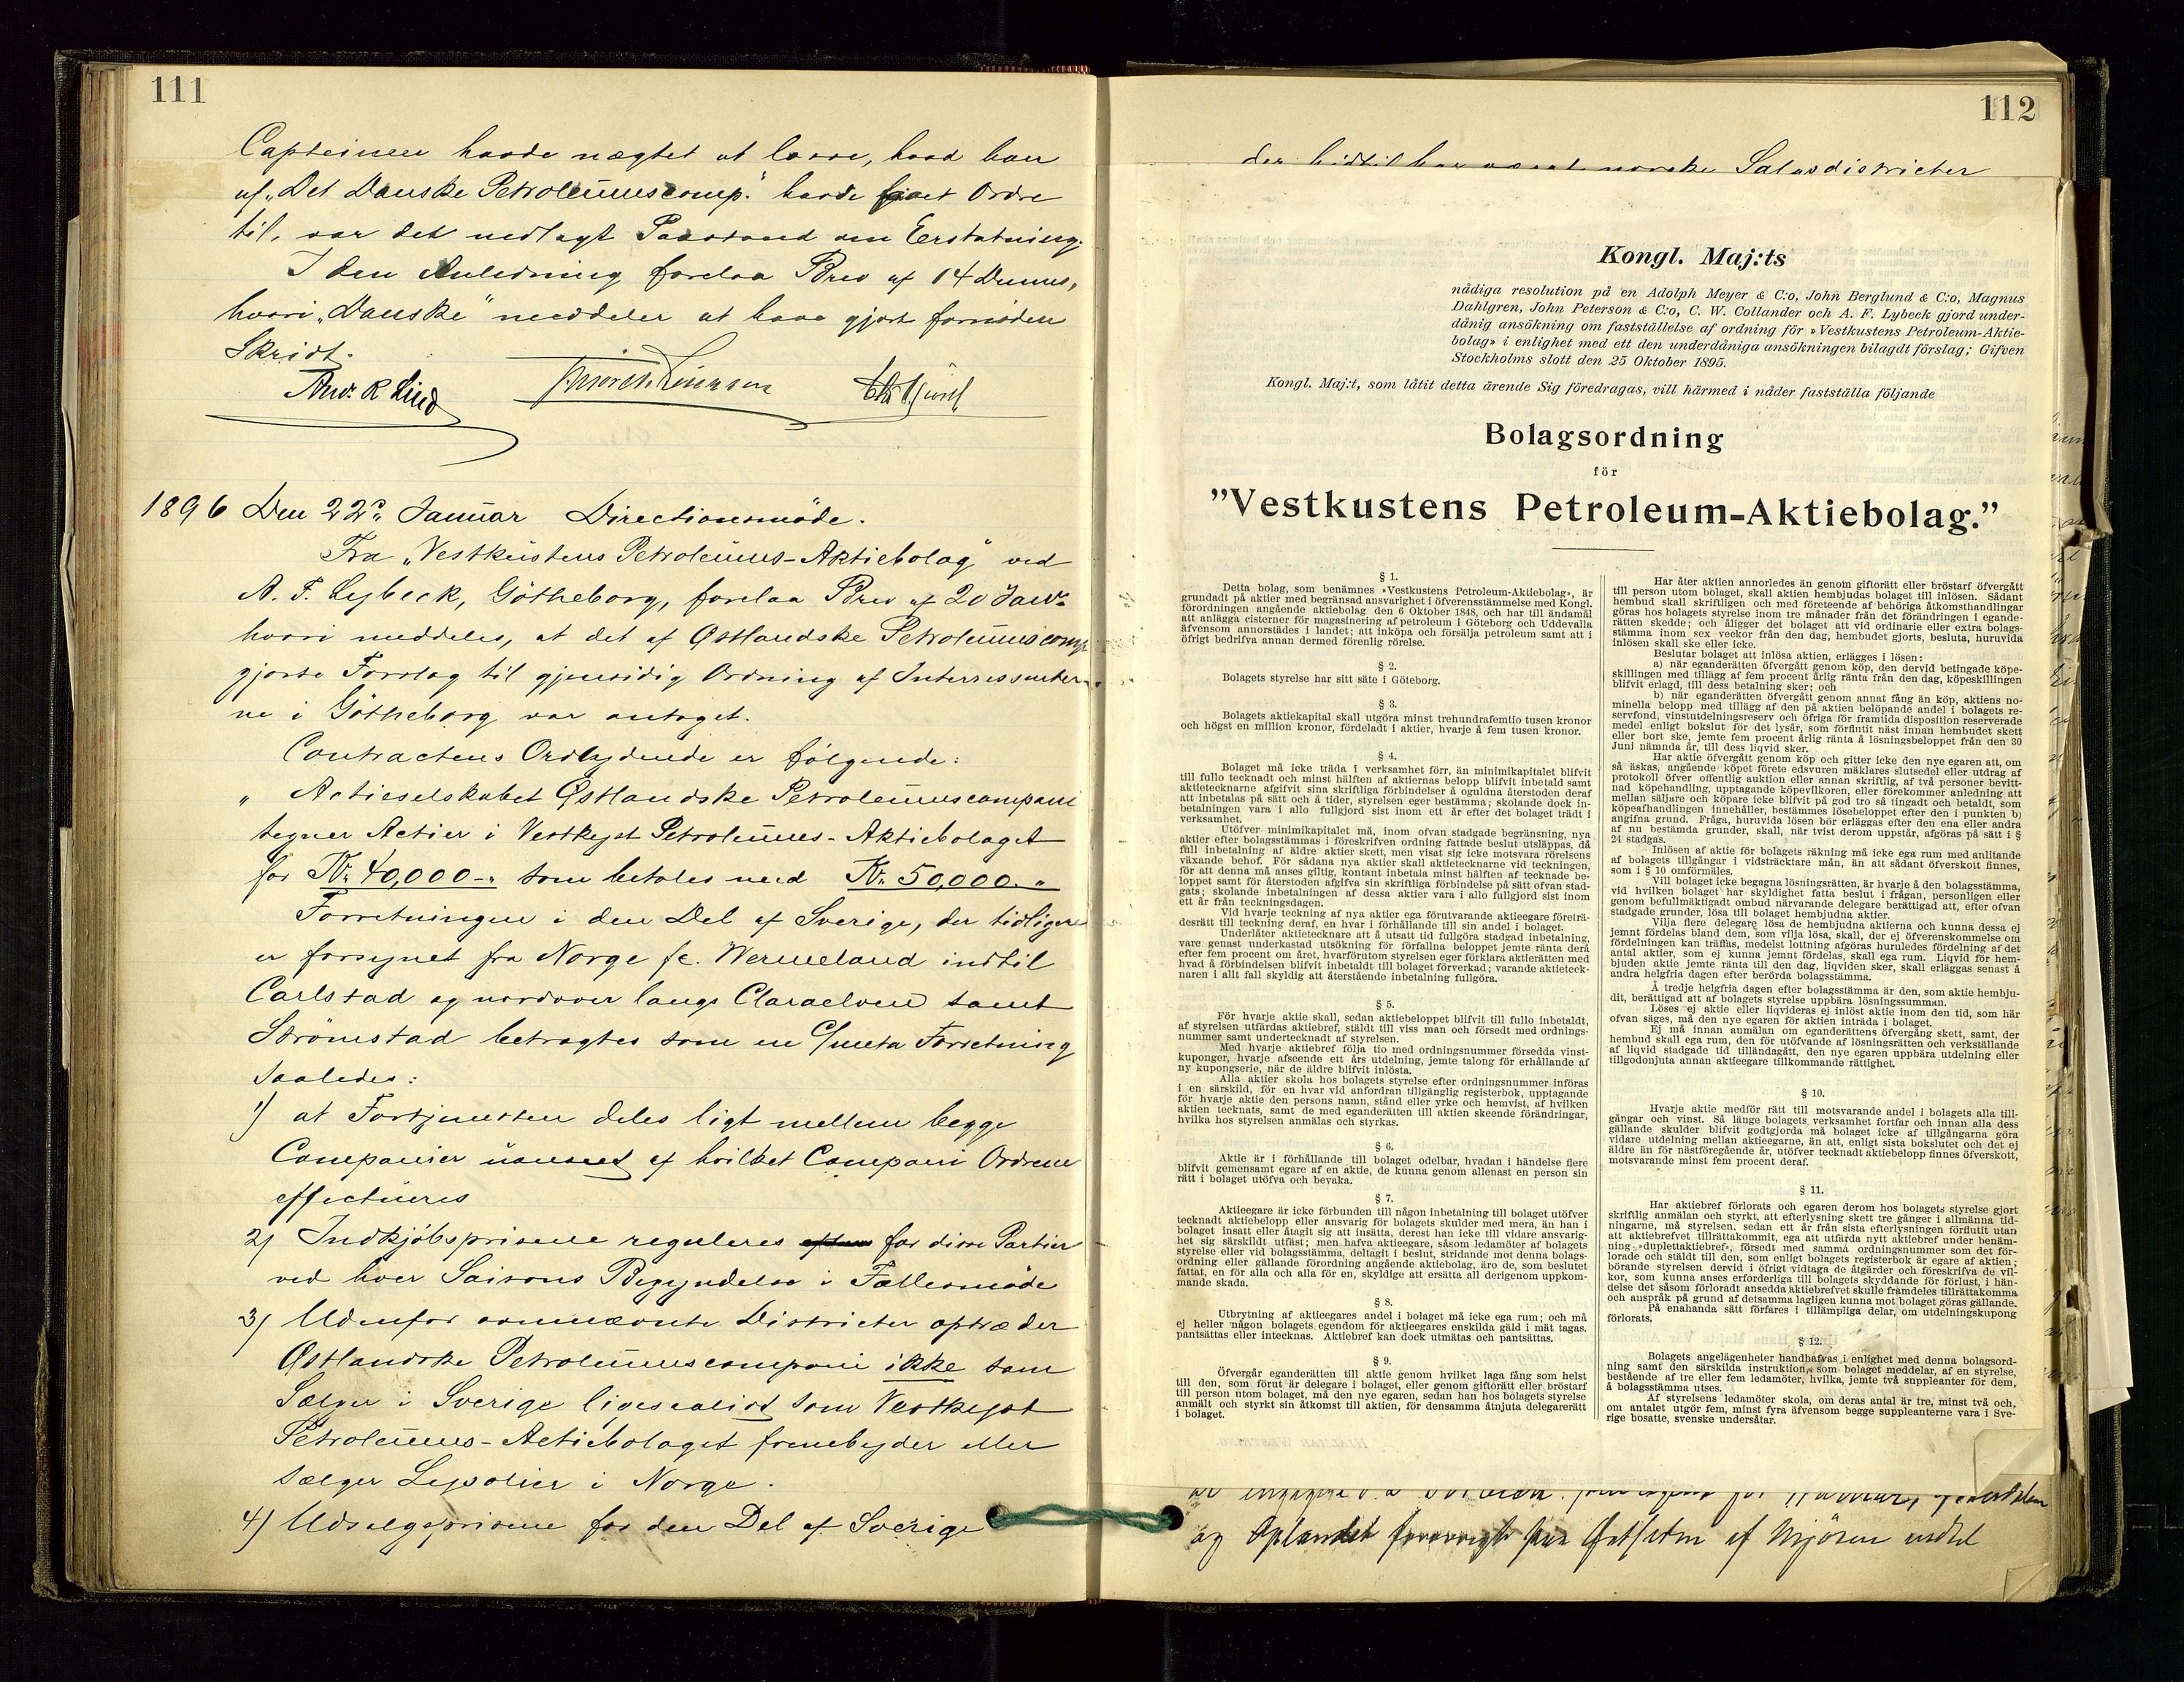 111
Capteinen havde nægtet at losse, hvad han
af „Det Danske Petroleumscomp." havde faaet Ordre
til, var det nedlagt Paastand om Erstatning.
I den Anledning forelaa Brev af 14 Dennes,
hvori „Danske" meddeler at have gjort fornöden
Skridt.
Andr. R Lind
1896 Den 22de Januar Directionsmöde.
Fra „Vestkustens Petroleums-Aktiebolag" ved
A. F. Lybeck, Götheborg, forelaa Brev af 20 Janr.
hvori meddeles, at det af Østlandske Petroleumscomp.
gjorte Forslag til gjensidig Ordning af Interessenter-
ne i Götheborg var antaget.
Contractens Ordlydende er følgende:
„ Actieselskabet Østlandske Petroleumscompani
tegner Actier i Vestkyst Petroleums-Aktiebolaget
for Kr. 40,000-" som betales med Kr. 50,000."
Forretningen i den Del af Sverige, der tidligere
er forsynet fra Norge fc. Wermeland indtil
Carlstad og nordover langs Claraelven samt
Strömstad betragtes som en C/meta Forretning
saaledes:
1) at Fortjenesten deles ligt mellem begge
Companier uanseet af hvilket Compani Ordren
effectueres
2) Indkjöbsprisene reguleres for disse Partier
ved hver Saisons Begyndelse i Fællesmöde
3) Udenfor ovennævnte Districter optræder
Østlandske Petroleumscompani ikke som
Sælger i Sverige ligesaalidt som Vestkyst
Petroleums-Actiebolaget frembyder eller
sælger Lysolier i Norge.
4) Udsalgsprisene for den Del af Sverige
112
der hidtil har været norske Salusdistricter
Kongl. Maj:ts
nådiga resolution på en Adolph Meyer & C:o, John Berglund & C:o, Magnus
Dahlgren, John Peterson & C:o, C. W. Collander och A. F. Lybeck gjord under-
dånig ansökning om fastställelse af ordning för »Vestkustens Petroleum-Aktie-
bolag» i enlighet med ett den underdåniga ansökningen bilagdt förslag; Gifven
Stockholms slott den 25 Oktober 1895.
Kongl. Maj:t, som låtit detta ärende Sig föredragas, vill härmed i nåder fastställa följande
Bolagsordning
för
”Vestkustens Petroleum-Aktiebolag.”
§ 1.
Detta bolag, som benämnes »Vestkustens Petroleum-Aktiebolag», är
grundadt på aktier med begränsad ansvarighet i öfverensstämmelse med Kongl.
förordningen angående aktiebolag den 6 Oktober 1848, och har till ändamål
att anlägga cisterner för magasinering af petroleum i Göteborg och Uddevalla
äfvensom annorstädes i landet; att inköpa och försälja petroleum samt att i
öfrigt bedrifva annan dermed förenlig rörelse.
§ 2.
Bolagets styrelse har sitt säte i Göteborg.
§ 3.
Bolagets aktiekapital skall utgöra minst trehundrafemtio tusen kronor
och högst en million kronor, fördeladt i aktier, hvarje å fem tusen kronor.
§ 4.
Bolaget må icke träda i verksamhet förr, än minimikapitalet blifvit
till fullo tecknadt och minst hälften af aktiernas belopp blifvit inbetald samt
aktietecknarne afgifvit sina skriftliga förbindelser å oguldna återstoden deraf
att inbetalas på sätt och å tider, styrelsen eger bestämma; skolande dock in-
betalningen vara i allo fullgjord sist inom ett år efter det bolaget trädt i
verksamhet.
Utöfver minimikapitalet må, inom ofvan stadgade begränsning, nya
aktier efter bolagsstämmas i föreskrifven ordning fattade beslut utsläppas, då
full inbetalning af äldre aktier skett, men visat sig icke motsvara rörelsens
växande behof. För sådana nya aktier skall aktietecknarne vid teckningen,
för att denna må anses giltig, kontant inbetala minst hälften af tecknade be-
loppet samt för återstoden afgifva sin skriftliga förbindelse på sätt ofvan stad-
gats; skolande inbetalningen af dessa aktier vara i allo fullgjord sist inom
ett år från teckningsdagen.
Vid hvarje teckning af nya aktier ega förutvarande aktieegare företrä-
desrätt till teckning deraf, en hvar i förhållande till sin andel i bolaget.
Underlåter aktietecknare att å utsatt tid fullgöra stadgad inbetalning,
vare genast underkastad utsökning för förfallna beloppet jemte ränta derå
efter fem procent om året, hvarförutom styrelsen eger förklara aktierätten med
hvad å förbindelsen blifvit inbetaldt till bolaget förverkad; varande aktieteck-
naren i allt fall skyldig att återstående inbetalning fullgöra.
§ 5.
För hvarje aktie skall, sedan aktiebeloppet blifvit till fullo inbetaldt,
af styrelsen utfärdas aktiebref, stäldt till viss man och försedt med ordnings-
nummer samt undertecknadt af styrelsen.
Med hvarje aktiebref följa tio med ordningsnummer försedda vinst-
kuponger, hvarje afseende ett års utdelning, jemte talong för erhållande af
ny kupongserie, när de äldre blifvit inlösta.
Alla aktier skola hos bolagets styrelse efter ordningsnummer införas
i en särskild, för en hvar vid anfordran tillgänglig registerbok, upptagande
för hvarje aktie den persons namn, stånd eller yrke och hemvist, af hvilken
aktien tecknats, samt de med eganderätten till aktien skeende förändringar,
hvilka hos styrelsen anmälas och styrkas.
§ 6.
Aktie är i förhållande till bolaget odelbar, hvadan i händelse flere
blifvit gemensamt egare af en aktie, de kunna genom allenast en person sin
rätt i bolaget utöfva och bevaka.
§ 7.
Aktieegare är icke förbunden till någon inbetalning till bolaget utöfver
tecknadt aktiebelopp eller ansvarig för bolagets skulder med mera, än han i
bolaget insatt eller åtagit sig att insätta, derest han icke till vidare ansvarig-
het sig särskildt utfäst; men hafva aktieegare, såsom ledamöter af bolagets
styrelse eller vid bolagsstämma, deltagit i beslut, stridande mot denna bolags-
ordning eller gällande förordning angående aktiebolag, äro de, som beslutet
fattat, en för alla och alla för en, skyldige att ersätta all derigenom uppkom-
mande skada.
§ 8.
Utbrytning af aktieegares andel i bolaget må icke ega rum; och må
ej heller någon bolagets egendom för aktieegares enskilda gäld i mät tagas,
pantsättas eller intecknas. Aktiebref kan dock utmätas och pantsättas.
§ 9.
Öfvergår eganderätten till aktie genom hvilket laga fång som helst
till den, som förut är delegare i bolaget, eller genom giftorätt eller bröstarf
till person utom bolaget, må den nye egaren, sedan han hos bolagets styrelse
anmält och styrkt sin åtkomst till aktien, för densamma åtnjuta delegarerätt
i bolaget.
Har åter aktien annorledes än genom giftorätt eller bröstarf öfvergått
till person utom bolaget, skall aktien hembjudas bolaget till inlösen. Sådant
hembud skall skriftligen och med företeende af behöriga åtkomsthandlingar
göras hos bolagets styrelse inom tre månader från det förändringen i egande-
rätten skedde; och åligger det bolaget att vid ordinarie eller extra bolags-
stämma inom sex veckor från den dag, hembudet gjorts, besluta, huruvida
inlösen skall ske eller icke.
Beslutar bolaget att inlösa aktien, erlägges i lösen:
a) när eganderätten öfvergått genom köp, den dervid betingade köpe-
skillingen med tillägg af fem procent årlig ränta från den dag, köpeskillingen
blifvit erlagd, till dess betalning sker; och
b) när eganderätten öfvergått genom annat fång än köp, aktiens no-
minella belopp med tillägg af den på aktien belöpande andel i bolagets re-
servfond, vinstutdelningsreserv och öfriga för framtida disposition reserverade
medel enligt bokslut för det lysår, som förflutit näst innan hembudet skett
eller bort ske, jemte fem procent årlig ränta å lösningsbeloppet från den 30
Juni nämnda år, till dess liqvid sker.
Har aktie öfvergått genom köp och gitter icke den nye egaren att, om
så äskas, angående köpet förete edsvuren mäklares slutsedel eller utdrag af
protokoll öfver offentlig auktion eller annan skriftlig, af två personer bevitt-
nad köpehandling, upptagande köpevilkoren, eller förekommer anledning att
mellan säljare och köpare icke blifvit på god tro så tingadt och betaldt, som
köpeafhandlingen innehåller, bestämmes lösebeloppet efter den i punkten b)
angifna grund. Fråga, huruvida lösen bör erläggas efter den ena eller andra
af nu bestämda grunder, skall, när tvist derom uppstår, afgöras på sätt i §
24 stadgas.
Inlösen af aktie för bolagets räkning må icke ega rum med anlitande
af bolagets tillgångar i vidsträcktare mån, än att sådant öfverskott finnes,
som i § 10 omförmäles.
Vill bolaget icke begagna lösningsrätten, är hvarje å den bolagsstämma,
vid hvilken bolaget har skyldighet fatta beslut i frågan, personligen eller
genom befullmäktigadt ombud närvarande delegare berättigad att, efter ofvan
stadgade grunder, lösa till bolaget hembjudna aktier.
Vilja flere delegare lösa de hembjudna aktierna och kunna dessa ej
jemnt fördelas bland dem, som vilja lösa, skall, der ej öfverenskommelse om
fördelningen kan träffas, medelst lottning afgöras huruledes fördelning af det
antal aktier, som ej kunna jemnt fördelas, skall ega rum. Liqvid för hem-
bjuden aktie jemte ränta till den dag, liqviden sker, skall erläggas senast å
andra helgfria dagen efter berörda bolagsstämma.
Å tredje helgfria dagen efter bolagsstämma är den, som aktie hembju-
dit, berättigad att af bolagets styrelse uppbära lösningssumman.
Löses ej aktie eller liqvideras ej inlöst aktie inom den tid, som här
ofvan säges, må den nye egaren för aktien inträda i bolaget.
Ej må innan anmälan om eganderättens öfvergång skett, samt, der
hembud skall ega rum, den för utöfvande af lösningsrätten och verkställande
af liqvid stadgade tid tilländagått, den nye egaren uppbära utdelning eller
tillgodonjuta annan aktieegare tillkommande rättighet.
§ 10.
Hvarje aktie medför rätt till motsvarande andel i bolagets alla till-
gångar och vinst. Så länge bolagets verksamhet fortfar och innan alla dess
gällande skulder blifvit godtgjorda må bolaget icke af tillgångarna göra
vidare utdelning mellan aktieegarne, än att, enligt sista bokslutet och det ej
äldre än för nästföregående år, utöfver tecknadt aktiebelopp finnes öfverskott,
motsvarande minst fem procent deraf.
§ 11.
Har aktiebref förlorats och egaren derom hos bolagets styrelse gjort
skriftlig anmälan och styrkt, att efterlysning skett tre gånger i allmänna tid-
ningarne, må styrelsen, sedan ett år från sista efterlysningen förflutit utan
att aktiebrefvet tillrättakommit, ega att utfärda nytt aktiebref under benäm-
ning »duplettaktiebref», försedt med samma ordningsnummer som det för-
lorade och stäldt till den, som enligt bolagets registerbok är egare af aktien;
börande styrelsen dervid i öfrigt vidtaga de åtgärder och föreskrifva de vil-
kor, som kunna anses erforderliga till bolagets skyddande för förlust, i hän-
delse det såsom förloradt ansedda aktiebrefvet skulle framdeles tillrättakomma
och anspråk på grund af detsamma lagligen kunna mot bolaget göras gällande.
På enahanda sätt förfares i tillämpliga delar, om utdelningskupong
förlorats.
§ 12.
Bolagets angelägenheter handhafvas i enlighet med denna bolagsord-
ning samt den särskilda instruktion, som bolaget meddelar, af en styrelse,
bestående af tre eller fem ledamöter, hvilka, jemte två suppleanter för dem,
å bolagsstämma utses.
Af styrelsens ledamöter skola, om deras antal är tre, minst två och,
om antalet utgör fem, minst fyra äfvensom begge suppleanterne vara i Sve-
rige bosatte, svenske undersåtar.
og Oplandet af Mjösen indtil